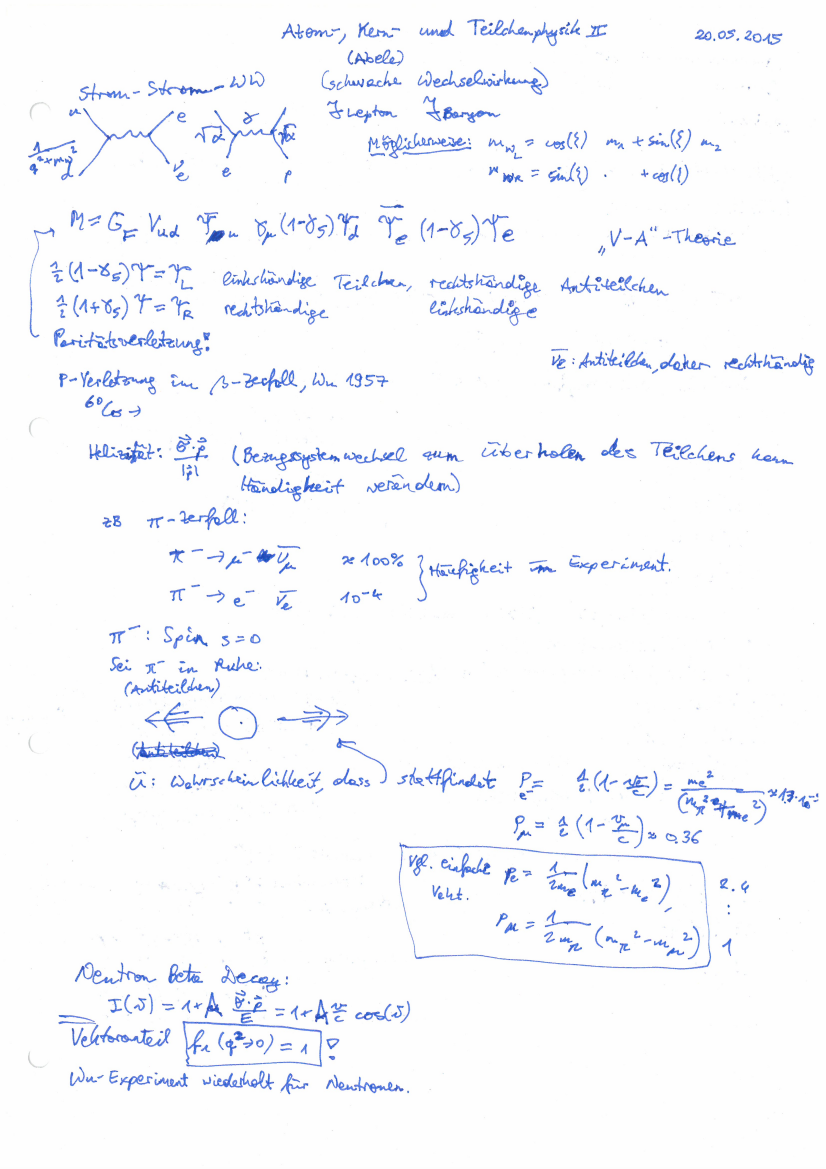 Atom-, Kern- und Teilchenphysik II 20.05.2015
(Abele)
Strom-Strom-WW (schwache Wechselwirkung)
J Lepton J Baryon
u e γ √α √α
d ν̄e e p
Möglicherweise: m_WL = cos(ξ) m1 + sin(ξ) m2
m_WR = sin(ξ) · + cos(ξ)
M = G_F V_ud Ψ̄_u γμ (1-γ5) Ψ_d Ψ̄_e (1-γ5) Ψ_e
„V-A“-Theorie
½ (1-γ5) Ψ = Ψ_L linkshändige Teilchen, rechtshändige Antiteilchen
½ (1+γ5) Ψ = Ψ_R rechtshändige linkshändige
Paritätsverletzung!
ν̄e: Antiteilchen, daher rechtshändig
P-Verletzung im β-Zerfall, Wu 1957
60Co →
Helizität: σ⃗·p⃗ / |p⃗| (Bezugssystemwechsel zum überholen des Teilchens kann
Händigkeit verändern)
zB π-Zerfall:
π⁻ → μ⁻ ν̄μ ≈ 100%
Häufigkeit im Experiment.
π⁻ → e⁻ ν̄e 10⁻⁴
π⁻: Spin s=0
Sei π⁻ in Ruhe:
(Antiteilchen)
Ü: Wahrscheinlichkeit, dass stattfindet P_e⁻ = ½ (1 - v_e/c) = m_e² / (m_π² + m_e²) ≈ 1,3·10⁻⁵
P_μ = ½ (1 - v_μ/c) ≈ 0.36
Vgl. einfache p_e = 1/2m_π (m_π² - m_e²) 2.4
Vekt. :
p_μ = 1/2m_π (m_π² - m_μ²) 1
Neutron Beta Decay:
I(ϑ) = 1 + A σ⃗·p⃗/E = 1 + A v/c cos(ϑ)
Vektoranteil f1 (q²→0) = 1 !
Wu-Experiment wiederholt für Neutronen.